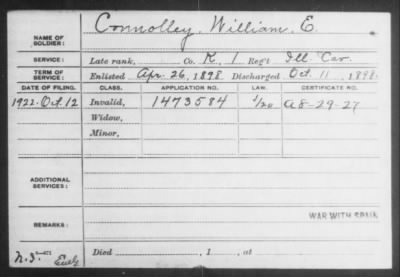 NAME OF SOLDIER: Connolley, William, E.
SERVICE: Late rank, Co. K, 1 Reg't Ill Cav.
TERM OF SERVICE: Enlisted Apr. 26, 1898 Discharged Oct. 11, 1898.
DATE OF FILING. CLASS. APPLICATION NO. LAW. CERTIFICATE NO.
1922. Oct. 12 Invalid, 1473584 A8-29-27
Widow,
Minor,
ADDITIONAL SERVICES:
WAR WITH SPAIN
REMARKS:
Died , 1 , at